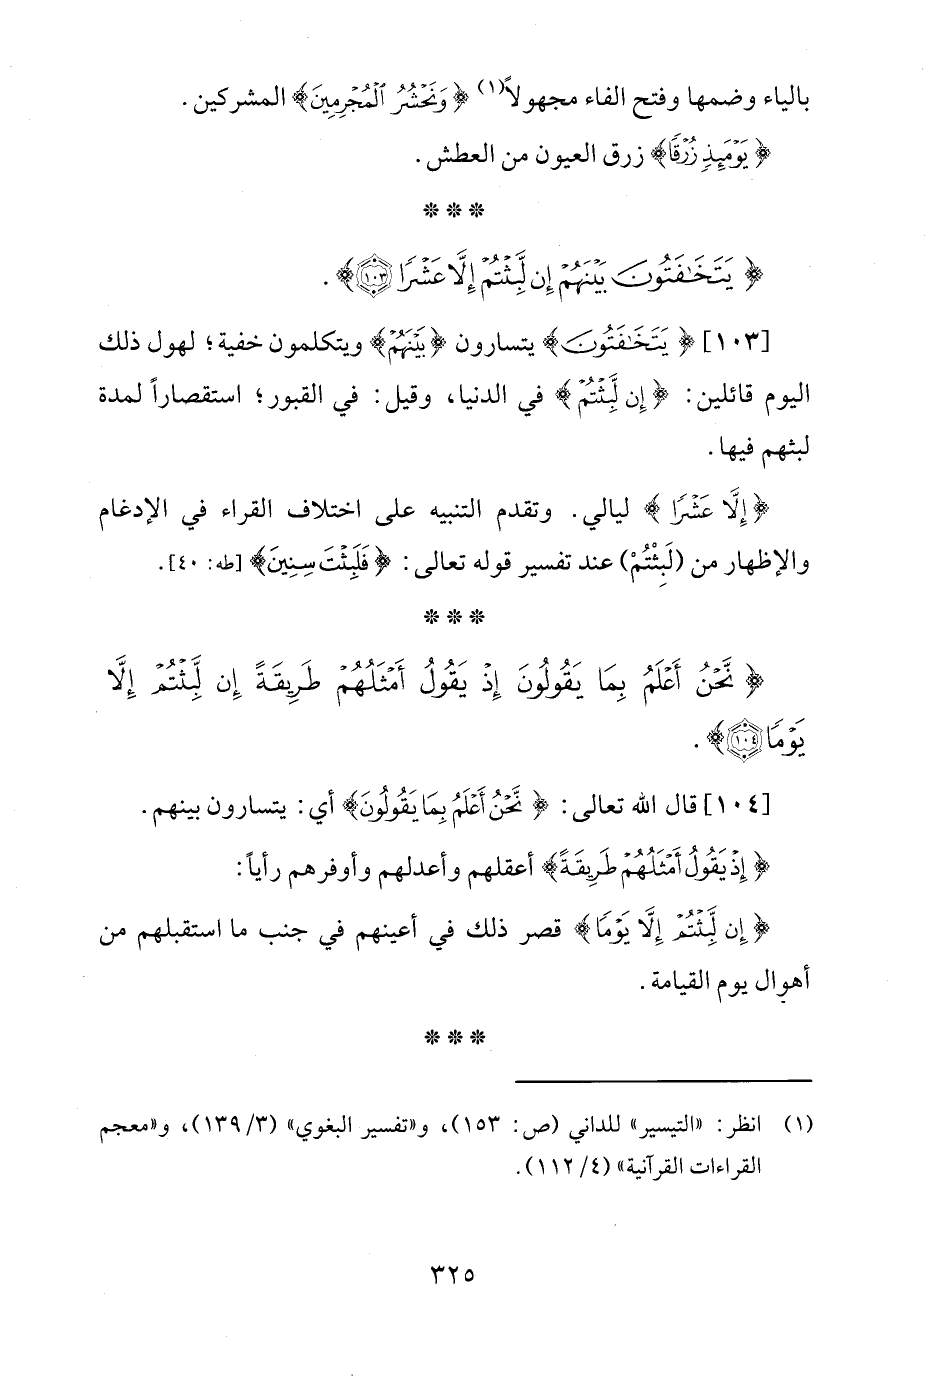 بالياء وضمها وفتح الفاء مجهولاً(١) ﴿وَنَحْشُرُ الْمُجْرِمِينَ﴾ المشركين.
﴿يَوْمَئِذٍ زُرْقًا﴾ زرق العيون من العطش.
* * *
﴿يَتَخَافَتُونَ بَيْنَهُمْ إِن لَّبِثْتُمْ إِلَّا عَشْرًا ١٠٣﴾.
[١٠٣] ﴿يَتَخَافَتُونَ﴾ يتسارون ﴿بَيْنَهُمْ﴾ ويتكلمون خفية؛ لهول ذلك
اليوم قائلين: ﴿إِن لَّبِثْتُمْ﴾ في الدنيا، وقيل: في القبور؛ استقصاراً لمدة
لبثهم فيها.
﴿إِلَّا عَشْرًا﴾ ليالي. وتقدم التنبيه على اختلاف القراء في الإدغام
والإظهار من (لَبِثْتُمْ) عند تفسير قوله تعالى: ﴿فَلَبِثْتَ سِنِينَ﴾ [طه: ٤٠].
* * *
﴿نَّحْنُ أَعْلَمُ بِمَا يَقُولُونَ إِذْ يَقُولُ أَمْثَلُهُمْ طَرِيقَةً إِن لَّبِثْتُمْ إِلَّا
يَوْمًا ١٠٤﴾.
[١٠٤] قال الله تعالى: ﴿نَّحْنُ أَعْلَمُ بِمَا يَقُولُونَ﴾ أي: يتسارون بينهم.
﴿إِذْ يَقُولُ أَمْثَلُهُمْ طَرِيقَةً﴾ أعقلهم وأعدلهم وأوفرهم رأياً:
﴿إِن لَّبِثْتُمْ إِلَّا يَوْمًا﴾ قصر ذلك في أعينهم في جنب ما استقبلهم من
أهوال يوم القيامة.
* * *
(١) انظر: «التيسير» للداني (ص: ١٥٣)، و«تفسير البغوي» (٣/ ١٣٩)، و«معجم
القراءات القرآنية» (٤/ ١١٢).
٣٢٥